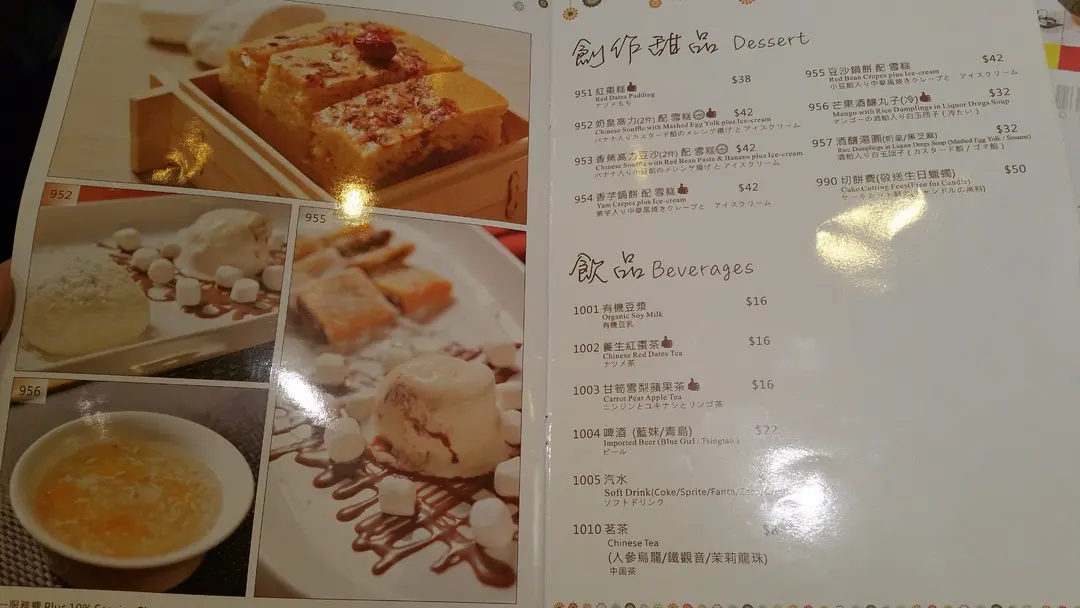 952
955
956
一服務費 Plus 10% Service
創作甜品 Dessert
951 紅棗糕 $38
Red Dates Pudding
ナツメもち
952 奶皇高力(2件) 配 雪糕 $42
Chinese Souffle with Mashed Egg Yolk plus Ice-cream
バナナ入りカスタード餡のメレンゲ揚げ と アイスクリーム
953 香蕉高力豆沙(2件) 配 雪糕 $42
Chinese Souffle with Red Bean Paste & Banana plus Ice-cream
バナナ入り小豆餡のメレンゲ揚げ と アイスクリーム
954 香芋鍋餅 配 雪糕 $42
Yam Crepes plus Ice-cream
紫芋入り中華風焼きクレープと アイスクリーム
955 豆沙鍋餅 配 雪糕 $42
Red Bean Crepes plus Ice-cream
小豆餡入り中華風焼きクレープと アイスクリーム
956 芒果酒釀丸子(冷) $32
Mango with Rice Dumplings in Liquor Dregs Soup
マンゴーの酒粕入り白玉団子(冷たい)
957 酒釀湯圓(奶皇/黑芝麻) $32
Rice Dumplings in Liquor Dregs Soup (Mashed Egg Yolk / Sesame)
酒粕入り白玉団子(カスタード餡/ゴマ餡)
990 切餅費(敬送生日蠟燭) $50
Cake Cutting Fees(Free for Candle)
飲品 Beverages
1001 有機豆漿 $16
Organic Soy Milk
有機豆乳
1002 養生紅棗茶 $16
Chinese Red Dates Tea
ナツメ茶
1003 甘筍雪梨蘋果茶 $16
Carrot Pear Apple Tea
ニンジンとユキナシとリンゴ茶
1004 啤酒 (藍妹/青島) $22
Imported Beer (Blue Girl / Tsingtao)
ビール
1005 汽水
Soft Drink(Coke/Sprite/Fanta/
ソフトドリンク
1010 茗茶
Chinese Tea
(人參烏龍/鐵觀音/茉莉龍珠)
中国茶